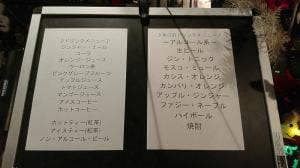 ドリンクメニュー
ジンジャー・エール
コーラ
オレンジ・ジュース
ウーロン茶
ピンクグレープフルーツ
アップルジュース
トマトジュース
マンゴージュース
アイスコーヒー
ホットコーヒー
ホットティー(紅茶)
アイスティー(紅茶)
ノン・アルコール・ビール
ーアルコール系ー
生ビール
ジン・トニック
モスコ・ミュール
カシス・オレンジ
カンパリ・オレンジ
アップル・ジンジャー
ファジー・ネーブル
ハイボール
焼酎